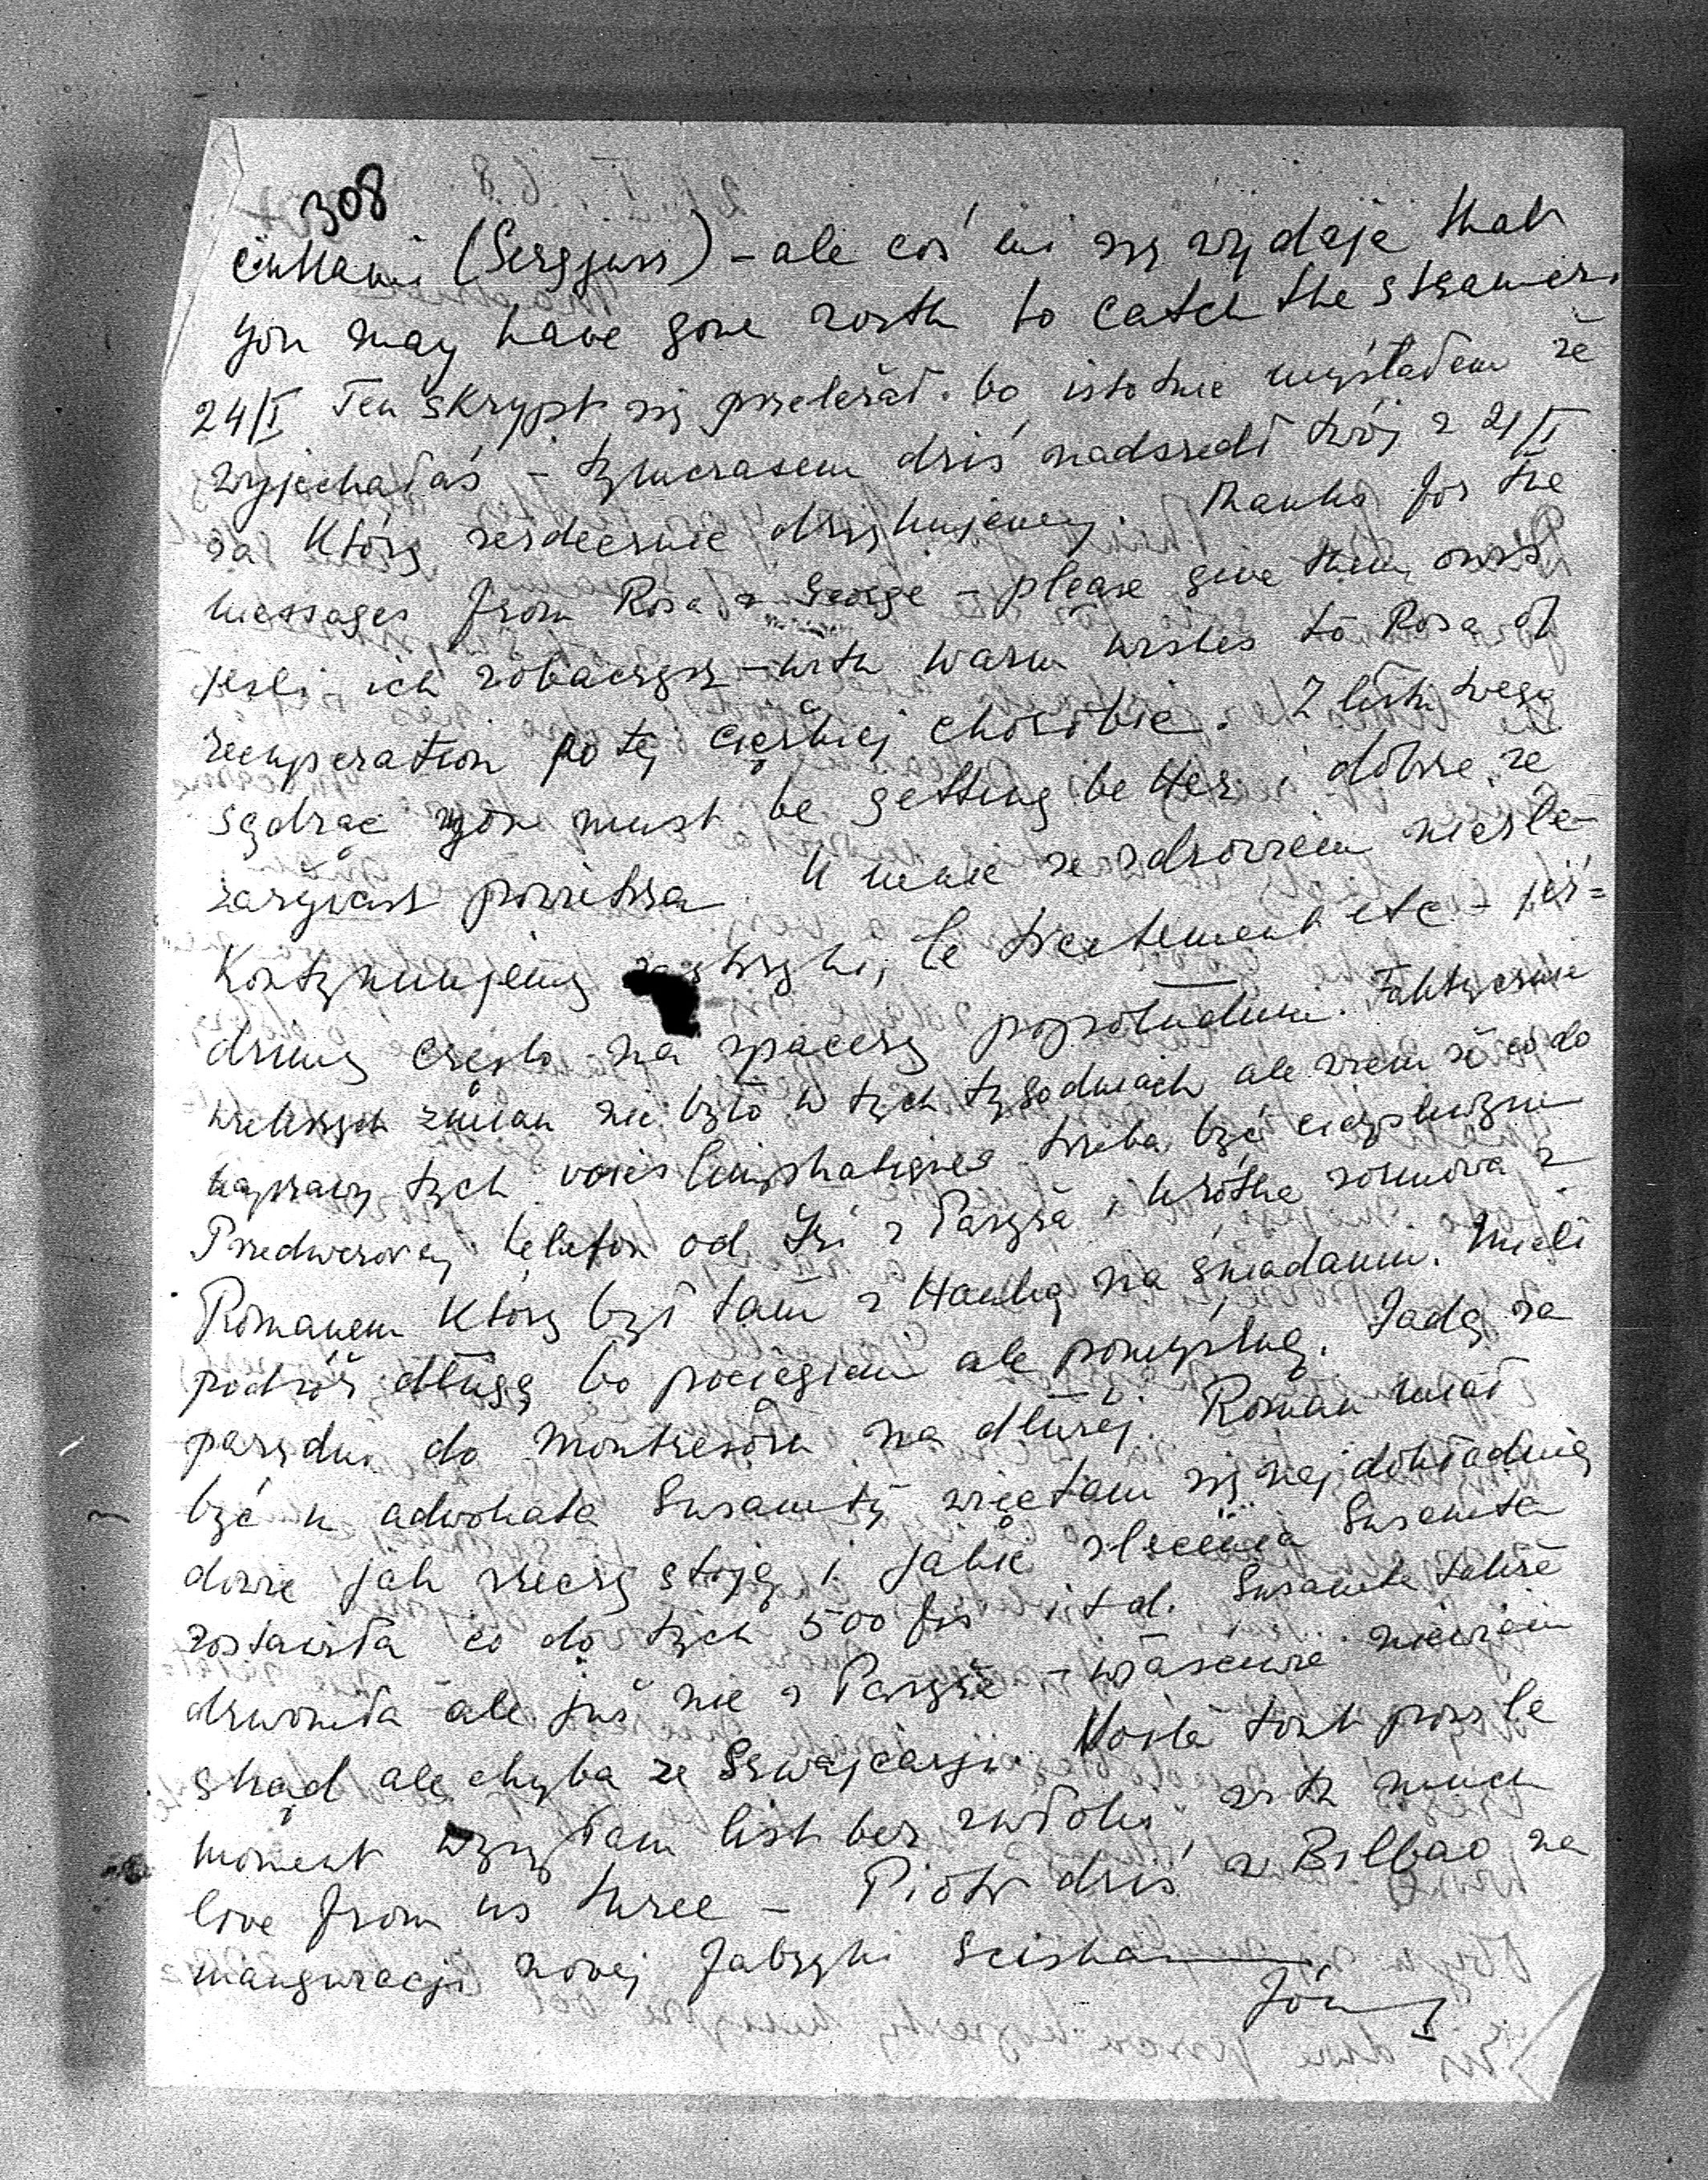 308
ciotkami (Sergjusz) – ale coś mi się wydaje that
you may have gone north to catch the steamer.
24/I Ten skrypt się przeleżał. bo istotnie myślałem że
wyjechałaś – tymczasem dziś nadszedł twój z 21/I
za który serdecznie dziękujemy. Thanks for the
messages from Rosa & George – please give them ours
jeśli ich zobaczysz – with warm wishes to Rosa of
recuperation po tej ciężkiej chorobie. Z listu twego
sądząc you must be getting better i dobrze że
zażywasz powietrza. U mnie ze zdrowiem nieźle –
Kontynuujemy zastrzyki, le traitement etc – jeź=
dzimy często na spacery popołudniu. Faktycznie
wielkich zmian nie było w tych tygodniach ale wiem że co do
naprawy tych voies lymphatiques trzeba być cierpliwym
Przedwczoraj telefon od Izi z Paryża i krótka rozmowa z
Romanem który był tam z Hanką na śniadaniu. Mieli
podróż długą bo pociągiem ale pomyślną. Jadą za
parę dni do Montrésoru na dłużej. Roman miał
być u adwokata Suzanity więc tam się najdokładniej
dowie jak rzeczy stoją i jakie zlecenia Suzanita
zostawiła co do tych 500 frs i t d. Suzanita także
dzwoniła ale już nie z Paryża – właściwie nie wiem
skąd ale chyba ze Szwajcarji. Voilà tout pour le
moment wysyłam list bez zwłoki, with much
love from us three – Piotr dziś w Bilbao na
inauguracji nowej fabryki
Józ